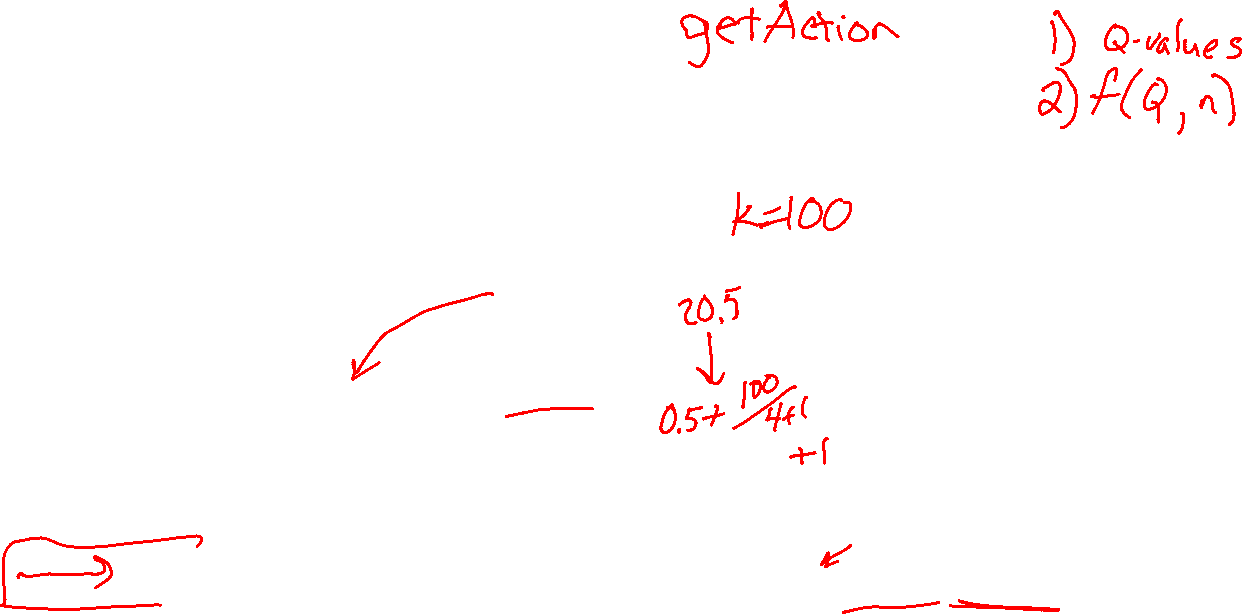 getAction
1) Q-values
2) f(Q, n)
k=100
20.5
0.5+ 100/4+1
+1